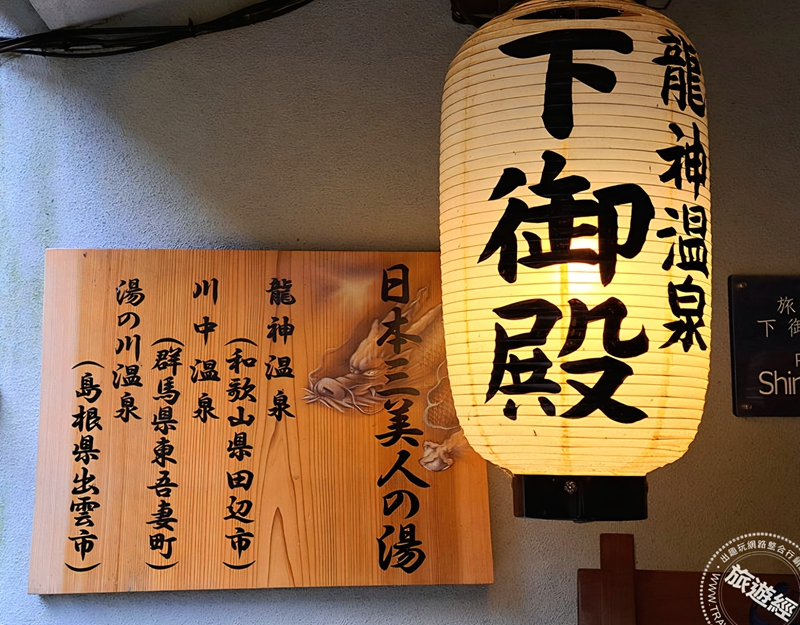 日本三美人の湯
龍神温泉
(和歌山県田辺市)
川中温泉
(群馬県東吾妻町)
湯の川温泉
(島根県出雲市)
龍神温泉
下御殿
旅
下御
Shim
出趣玩網路整合行銷
旅遊經